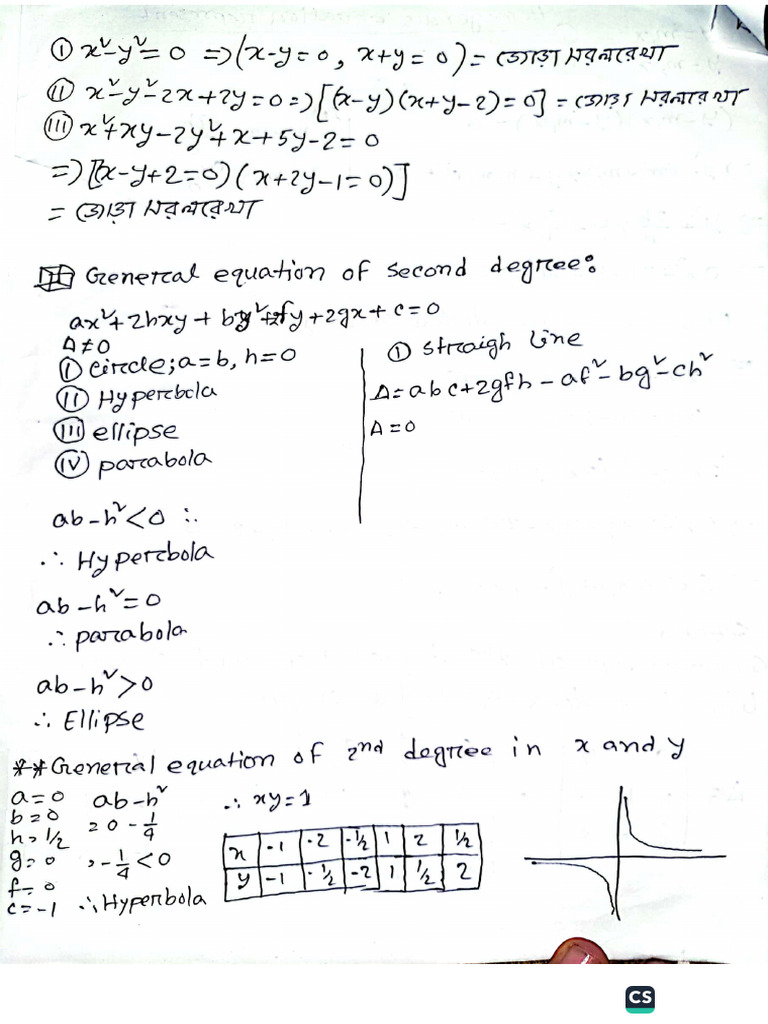 ① x²-y²=0 ⇒(x-y=0, x+y=0)= জোড়া সরলরেখা
② x²-y²-2x+2y=0⇒[(x-y)(x+y-2)=0] = জোড়া সরলরেখা
③ x²+xy-2y²+x+5y-2=0
⇒[(x-y+2=0)(x+2y-1=0)]
= জোড়া সরলরেখা
General equation of second degree:
ax²+2hxy+by²+2fy+2gx+c=0
Δ≠0
① circle; a=b, h=0
② Hyperbola
③ ellipse
④ parabola
① straigh line
Δ=abc+2gfh-af²-bg²-ch²
Δ=0
ab-h²<0 ∴
∴ Hyperbola
ab-h²=0
∴ parabola
ab-h²>0
∴ Ellipse
**General equation of 2nd degree in x and y
a=0
b=0
h=1/2
g=0
f=0
c=-1
ab-h²
=0-1/4
=-1/4<0
∴Hyperbola
∴ xy=1
x -1 -2 -1/2 1 2 1/2
y -1 -1/2 -2 1 1/2 2
CS